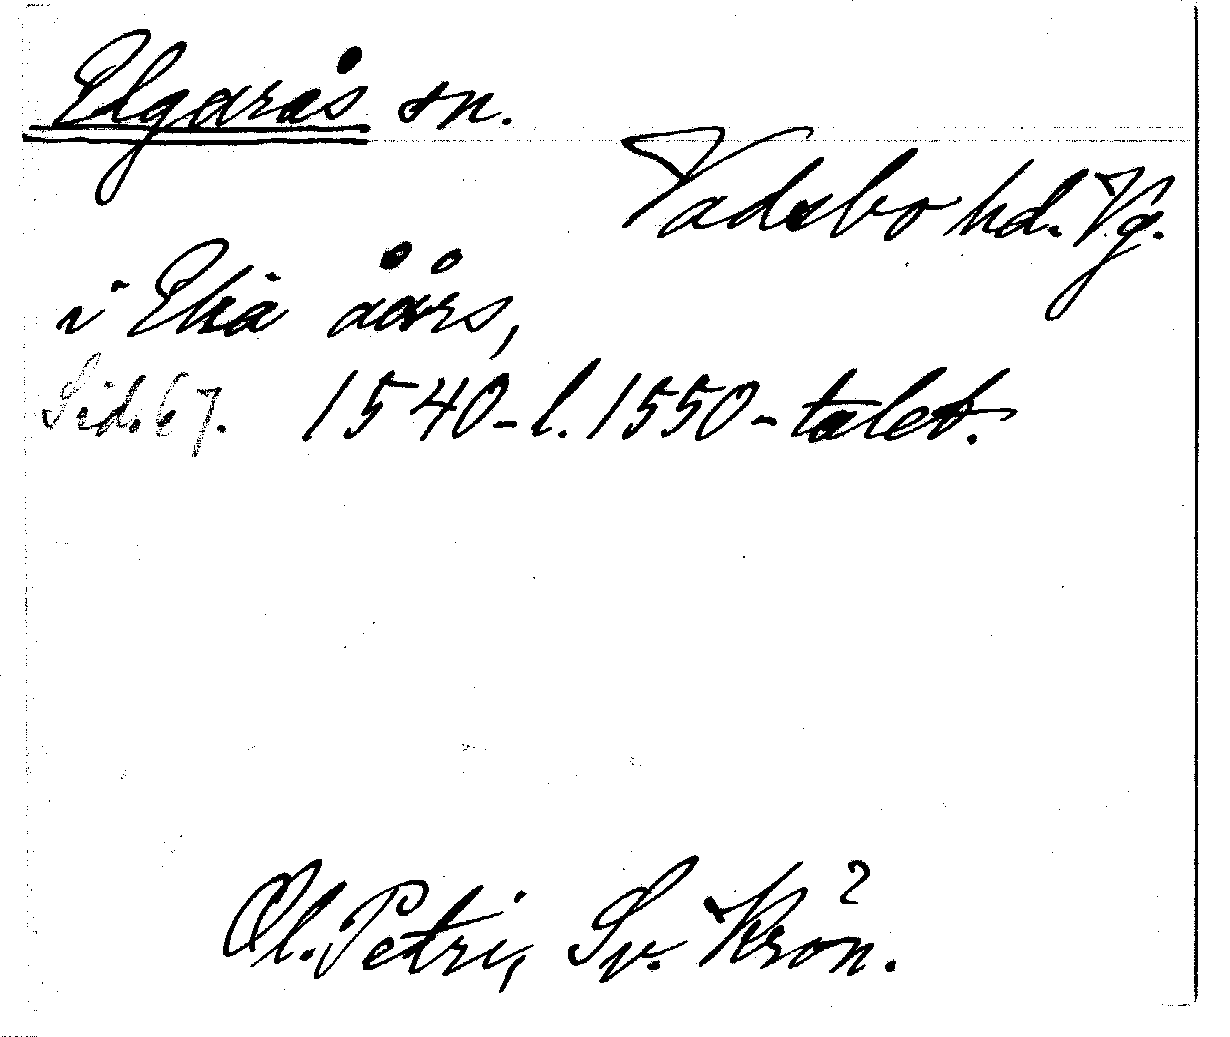 Elgarås sn.
Vadsbo hd. Vg.
i Ekä åårs,
Sid. 67. 1540- l. 1550-talet.
Ol. Petri, Sv. Krön. 2